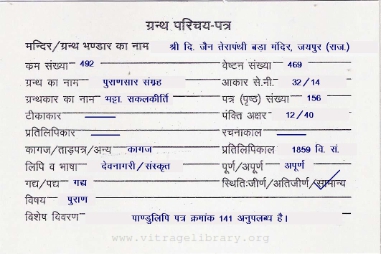 ग्रन्थ परिचय-पत्र
मन्दिर/ग्रन्थ भण्डार का नाम श्री दि. जैन तेरापंथी बड़ा मंदिर, जयपुर (राज.)
क्रम संख्या 492 वेष्टन संख्या 469
ग्रन्थ का नाम पुराणसार संग्रह आकार से.मी. 32/14
ग्रन्थकार का नाम भट्टा. सकलकीर्ति पत्र (पृष्ठ) संख्या 156
टीकाकार पंक्ति अक्षर 12/40
प्रतिलिपिकार रचनाकाल
कागज/ताड़पत्र/अन्य कागज प्रतिलिपिकाल 1859 वि. सं.
लिपि व भाषा देवनागरी/संस्कृत पूर्ण/अपूर्ण अपूर्ण
गद्य/पद्य गद्य स्थिति:जीर्ण/अतिजीर्ण/सामान्य
विषय पुराण
विशेष विवरण पाण्डुलिपि पत्र क्रमांक 141 अनुपलब्ध है।
www.vitragelibrary.org